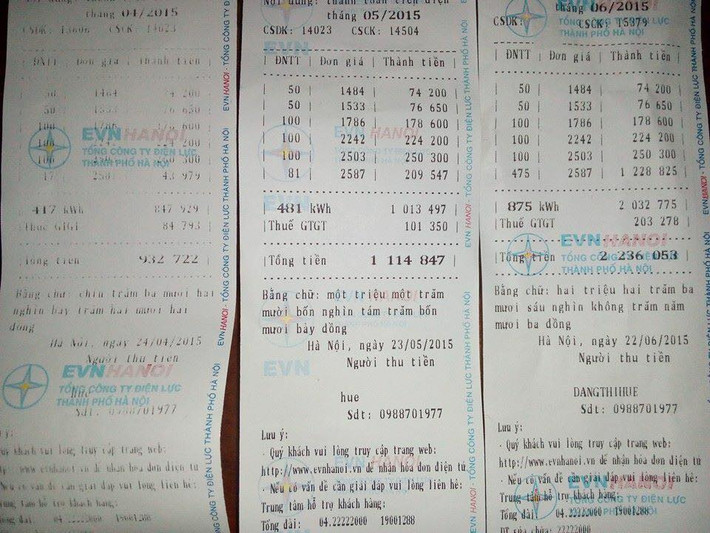 tháng 04/2015
CSDK: 13606 CSCK: 14023
ĐNTT Đơn giá Thành tiền
50 1484 4 200
50 1533 76 650
100
100
100 0 300
50 43 979
417 kWh 847 929
Thuế GTGT 84 793
Tổng tiền 932 722
Bằng chữ: chín trăm ba mươi hai
nghìn bảy trăm hai mươi hai
đồng
Hà Nội, ngày 24/04/2015
Người thu tiền
hue
Sdt: 0988701977
Lưu ý:
- Quý khách vui lòng truy cập trang web:
http://www.evnhanoi.vn để nhận hóa đơn điện tử
- Nếu có vấn đề cần giải đáp vui lòng liên hệ:
Trung tâm hỗ trợ khách hàng:
Tổng đài: 04.22222000 19001288
EVNHANOI
TỔNG CÔNG TY ĐIỆN LỰC
THÀNH PHỐ HÀ NỘI
EVNHANOI
TỔNG CÔNG TY ĐIỆN LỰC
THÀNH PHỐ HÀ NỘI
EVNHANOI - TỔNG CÔNG TY ĐIỆN LỰC THÀNH PHỐ HÀ NỘI
Nội dung: thanh toán tiền điện
tháng 05/2015
CSDK: 14023 CSCK: 14504
| ĐNTT | Đơn giá | Thành tiền |
| 50 | 1484 | 74 200 |
| 50 | 1533 | 76 650 |
| 100 | 1786 | 178 600 |
| 100 | 2242 | 224 200 |
| 100 | 2503 | 250 300 |
| 81 | 2587 | 209 547 |
| 481 kWh 1 013 497 |
|Thuế GTGT 101 350 |
|Tổng tiền 1 114 847 |
Bằng chữ: một triệu một trăm
mười bốn nghìn tám trăm bốn
mươi bảy đồng
Hà Nội, ngày 23/05/2015
Người thu tiền
hue
Sdt: 0988701977
Lưu ý:
- Quý khách vui lòng truy cập trang web:
http://www.evnhanoi.vn để nhận hóa đơn điện tử
- Nếu có vấn đề cần giải đáp vui lòng liên hệ:
Trung tâm hỗ trợ khách hàng:
Tổng đài: 04.22222000 19001288
EVN
EVN
EVNHANOI - TỔNG CÔNG TY ĐIỆN LỰC THÀNH PHỐ HÀ NỘI
tháng 06/2015
CSDK: CSCK: 15379
| ĐNTT | Đơn giá | Thành tiền |
| 50 | 1484 | 74 200 |
| 50 | 1533 | 76 650 |
| 100 | 1786 | 178 600 |
| 100 | 2242 | 224 200 |
| 100 | 2503 | 250 300 |
| 475 | 2587 | 1 228 825 |
| 875 kWh 2 032 775 |
|Thuế GTGT 203 278 |
|Tổng tiền 2 236 053 |
Bằng chữ: hai triệu hai trăm ba
mươi sáu nghìn không trăm năm
mươi ba đồng
Hà Nội, ngày 22/06/2015
Người thu tiền
DANGTHIHUE
Sdt: 0988701977
Lưu ý:
- Quý khách vui lòng truy cập trang web:
http://www.evnhanoi.vn để nhận hóa đơn điện tử
- Nếu có vấn đề cần giải đáp vui lòng liên hệ:
Trung tâm hỗ trợ khách hàng:
Tổng đài: 04.22222000 19001288
ĐT sửa chữa: 22222000
EVNHANOI
TỔNG CÔNG TY ĐIỆN LỰC
THÀNH PHỐ HÀ NỘI
EVNHANOI - TỔNG CÔNG TY ĐIỆN LỰC THÀNH PHỐ HÀ NỘI